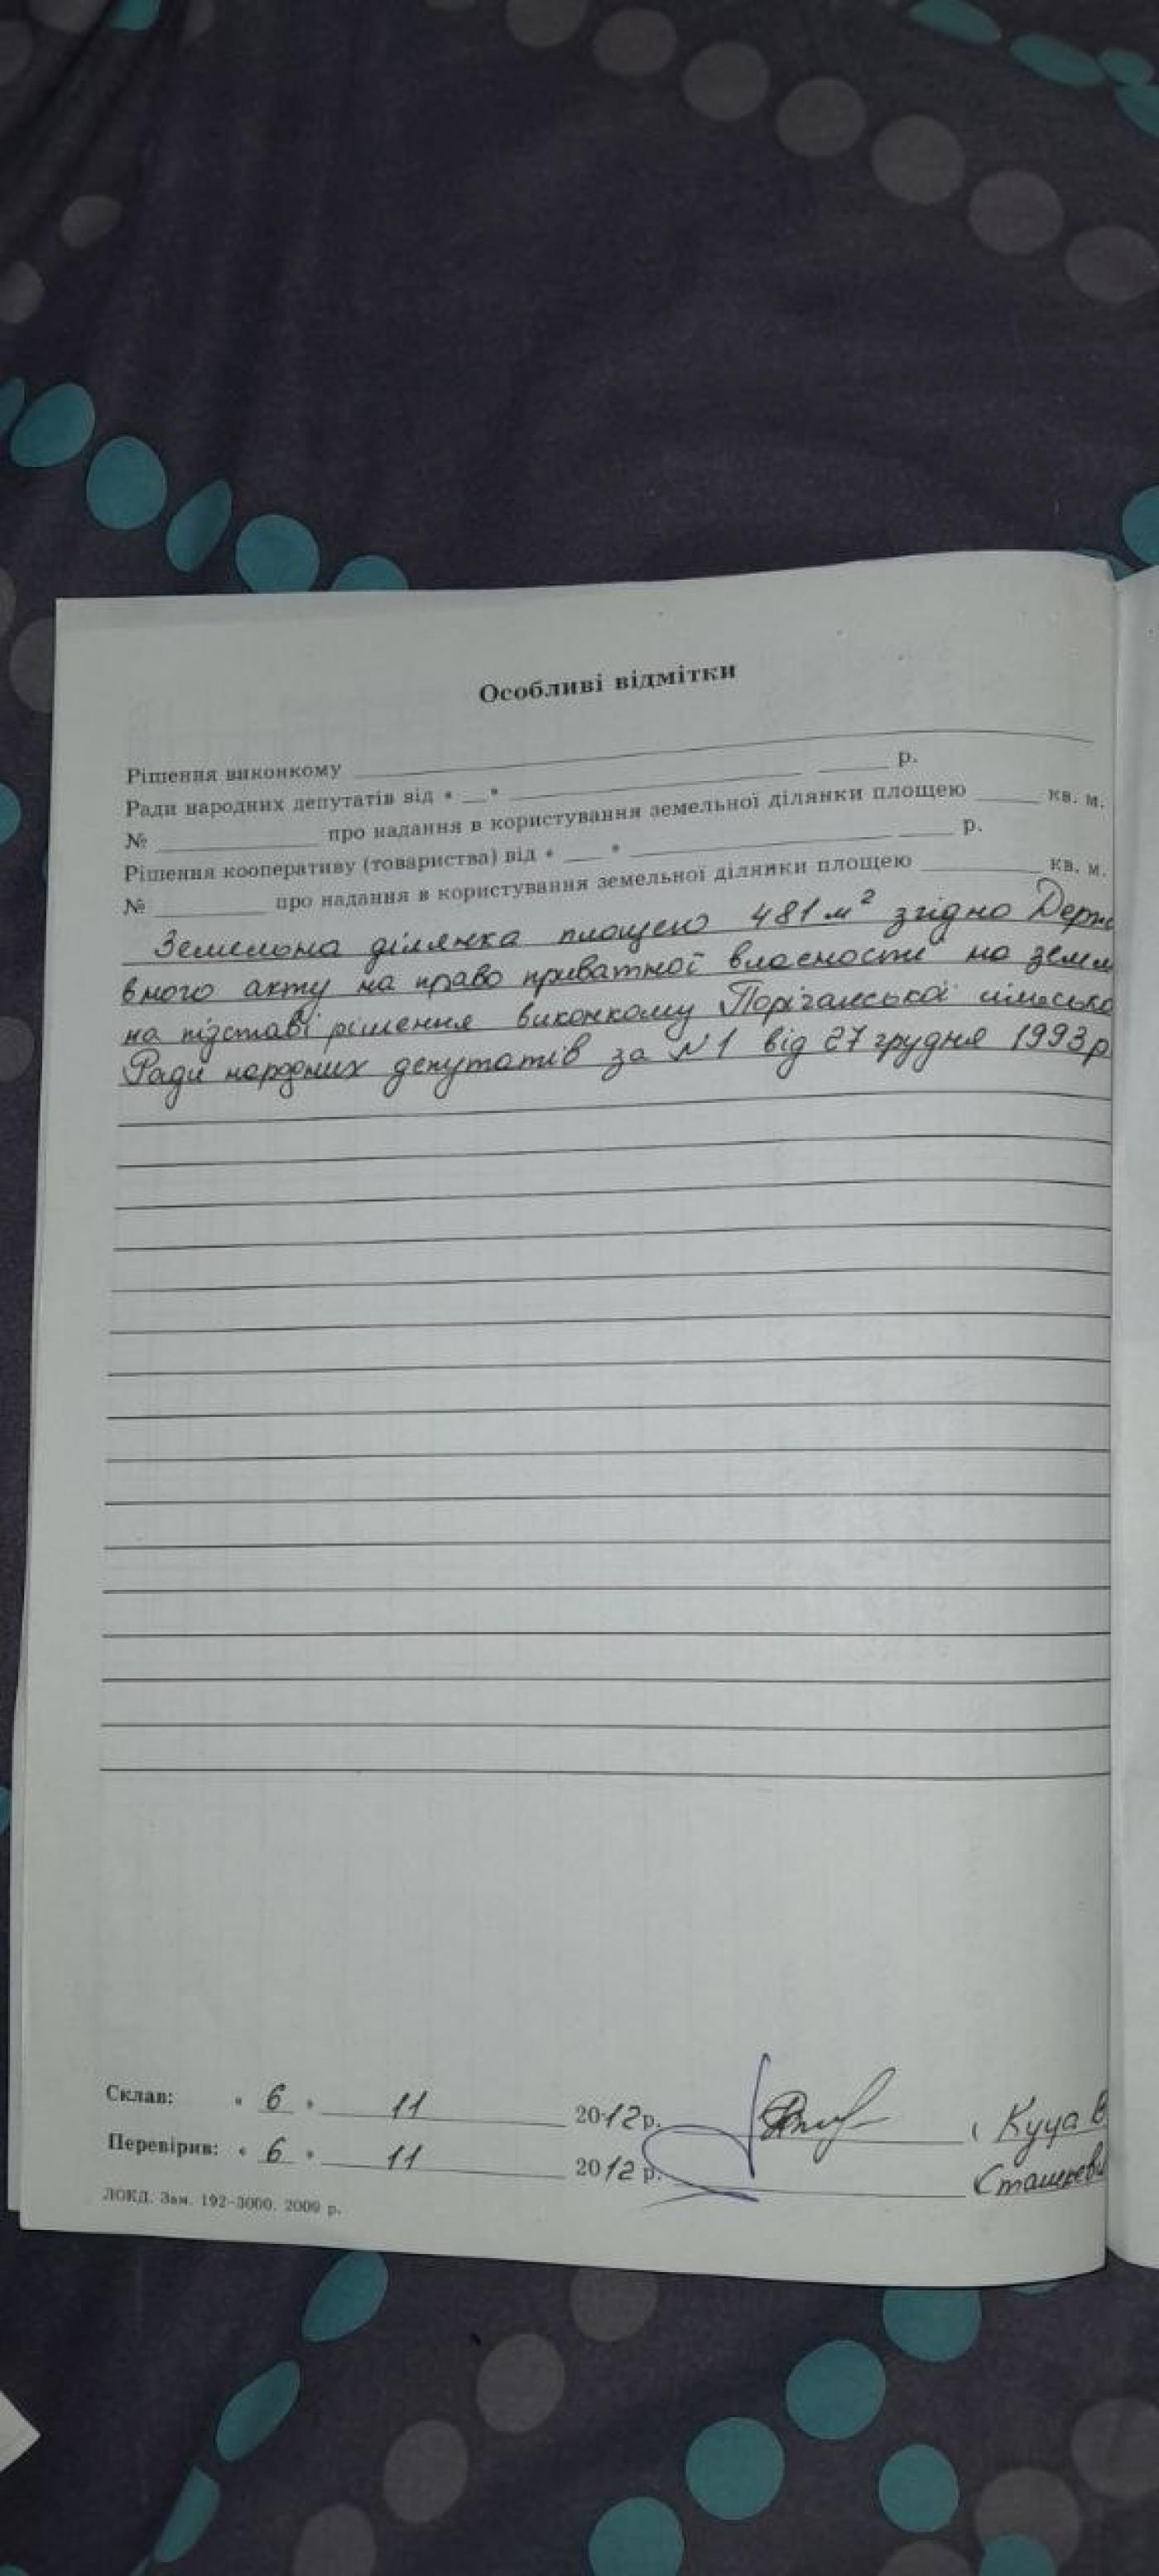 Особливі відмітки
Рішення виконкому
Ради народних депутатів від « » р.
№ про надання в користування земельної ділянки площею кв. м.
Рішення кооперативу (товариства) від « » р.
№ про надання в користування земельної ділянки площею кв. м.
Земельна ділянка площею 481 м² згідно Держ
вного акту на право приватної власності на земл
на підставі рішення виконкому
Ради народних депутатів за №1 від 27 грудня 1993р
Склав: « 6 » 11 2012 р. ( Куца В
Перевірив: « 6 » 11 2012 р.
ЛОКД. Зам. 192-3000. 2009 р.